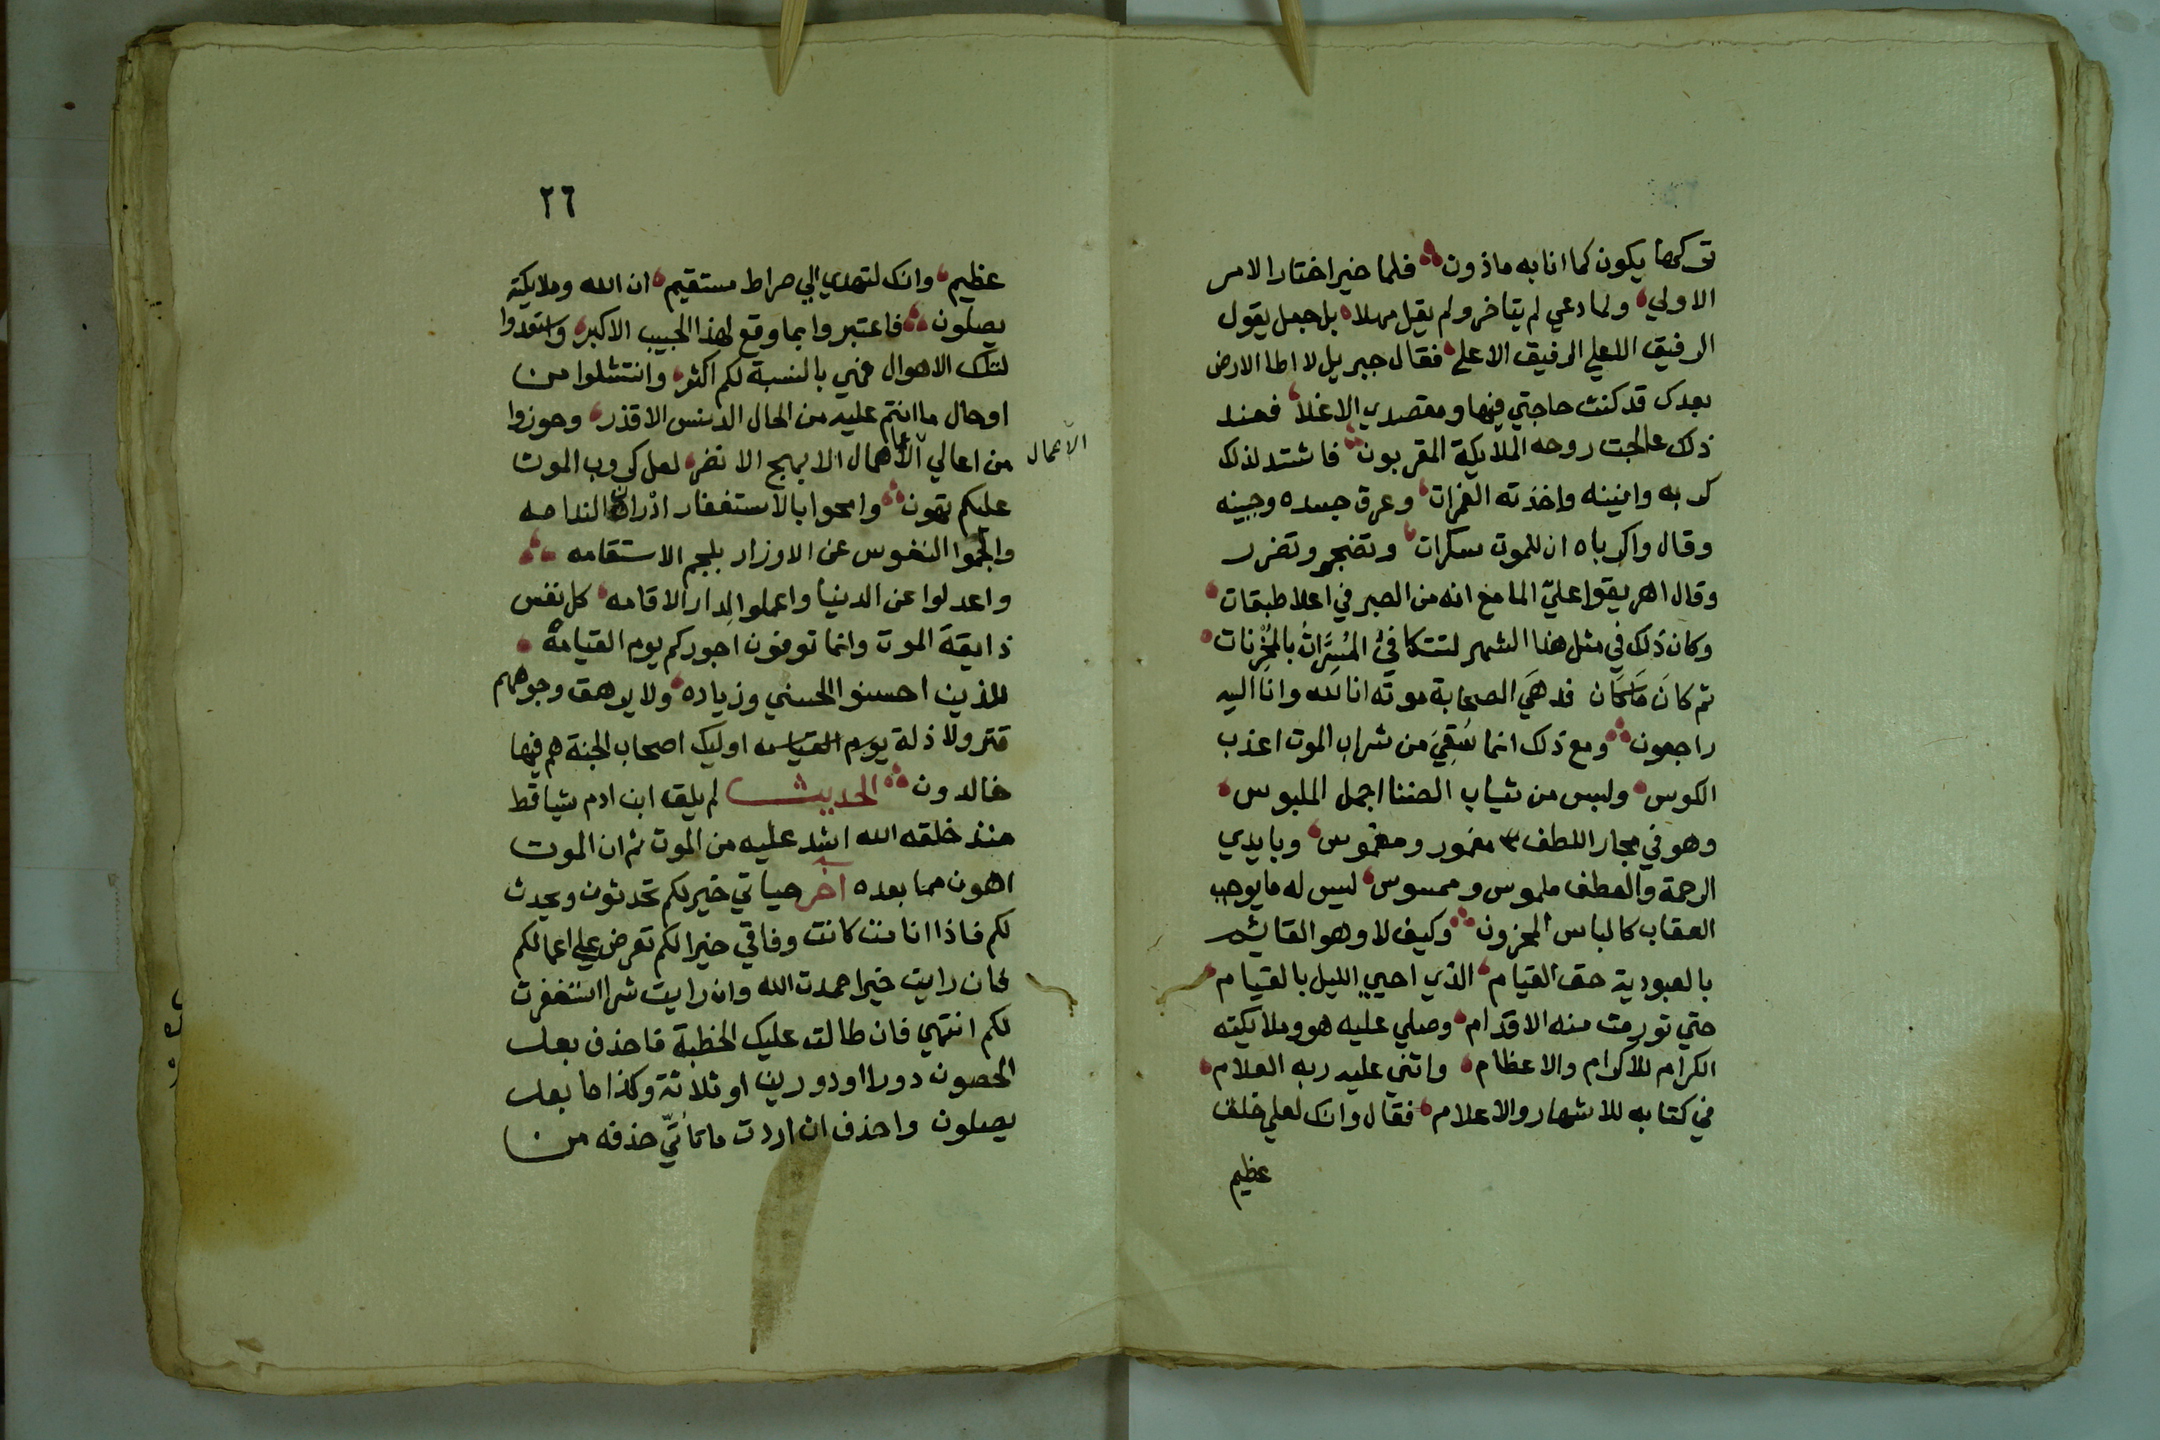 تركها يكون كما انا به ماذون فلما خير اختار الامر
الاولي ولما دعي لم يتاخر ولم يقل مهلا بل جعل يقول
الرفيق العلي الرفيق الاعلي فقال جبريل لا اطا الارض
بعدك قد كنت حاجتي فيها ومقصدي الاغلا فعند
ذلك عالجت روحه الملايكة المقربون فاشتد لذلك
كربه وانينه واخذته الغمرات وعرق جسده وجبينه
وقال واكرباه ان للموت سكرات وتضجر وتضرر
وقال اهريقوا علي الما مع انه من الصبر في اعلا طبقات
وكان ذلك في مثل هذا الشهر لتتكافئ المُسِرَّاتُ بالمُحْزِنات
ثم كانَ مَا كان فدهي الصحابة موته انا لله وانا اليه
راجعون ومع ذلك انما سُقِيَ من شراب الموت اعذب
الكوس ولبس من ثياب الضنا اجمل الملبوس
وهو في بحار اللطف مغمور ومغموس وبايدي
الرحمة والعطف ملموس وممسوس ليس له ما يوجب
العقاب كالباس المحزون وكيف لا وهو القائم
بالعبودية حق القيام الذي احيي الليل بالقيام
حتي تورمت منه الاقدام وصلي عليه هو وملايكته
الكرام للاكرام والاعظام واثني عليه ربه العلام
في كتابه للاشهار والاعلام فقال وانك لعلي خلق
عظيم
٢٦
عظيم وانك لتهدي الي صراط مستقيم ان الله وملايكته
يصلون فاعتبروا بما وقع لهذا الحبيب الاكبر واستعدوا
لتلك الاهوال فهي بالنسبة لكم اكثر وانتشلوا من
اوحال ما انتم عليه من الحال الدنس الاقذر وحوزوا
من اعالي الاعمال الابهج الانضر لعل كروب الموت
الاعمال
عليكم تهون وامحوا بالاستغفار ادران الندامه
والجموا النفوس عن الاوزار بلجم الاستقامه
واعدلوا عن الدنيا واعملوا لِدار الاقامه كل نفس
ذايقة الموت وانما توفون اجوركم يوم القيامة
للذين احسنوا الحسني وزياده ولا يرهق وجوههم
قتر ولا ذلة يوم القيامه اوليك اصحاب الجنة هم فيها
خالدون الحديث لم يلق ابن ادم شيا قط
منذ خلقه الله اشد عليه من الموت ثم ان الموت
اهون مما بعده آخر حياتي خير لكم تحدثون ويحدث
لكم فاذا انا مت كانت وفاتي خيرا لكم تعرض علي اعمالكم
فان رايت خيرا حمدت الله وان رايت شرا استغفرت
لكم انتهي فان طالت عليك الخطبة فاحذف بعد
الحصون دورا او دورين او ثلاثة وكذا ما بعد
يصلون واحذف ان اردت ما تأتّي حذفه من